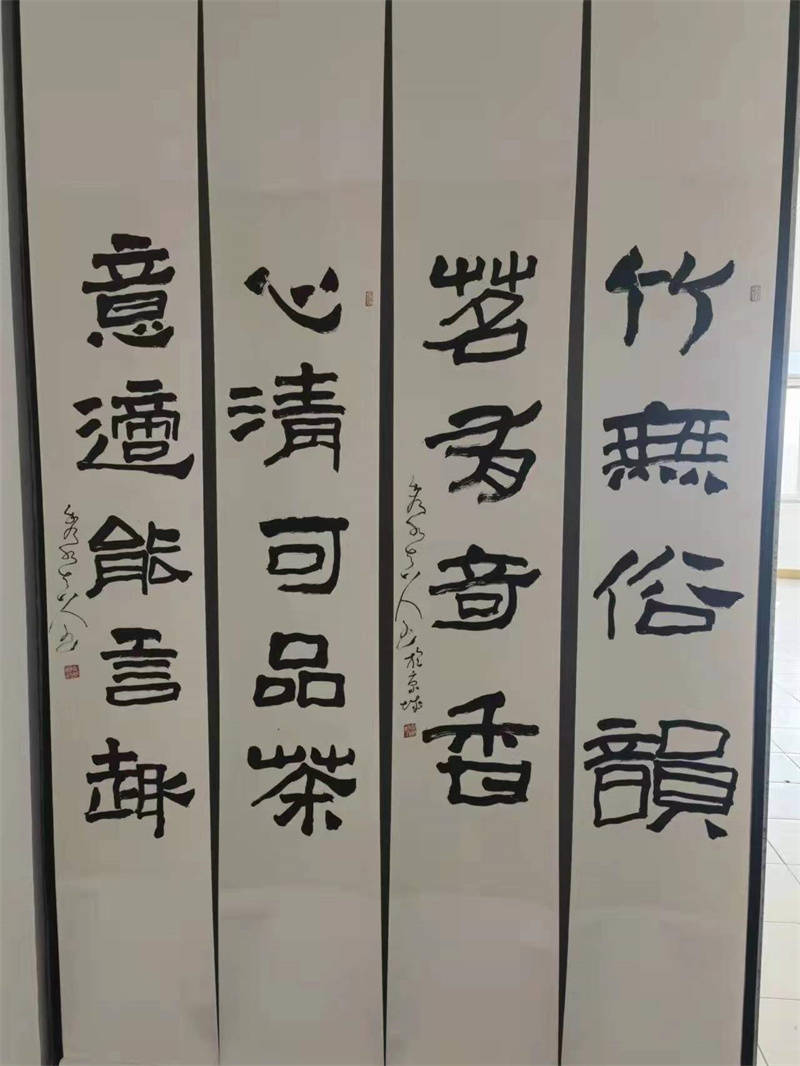 竹無俗韻
茗有奇香
於京城
心清可品茶
意適能言趣